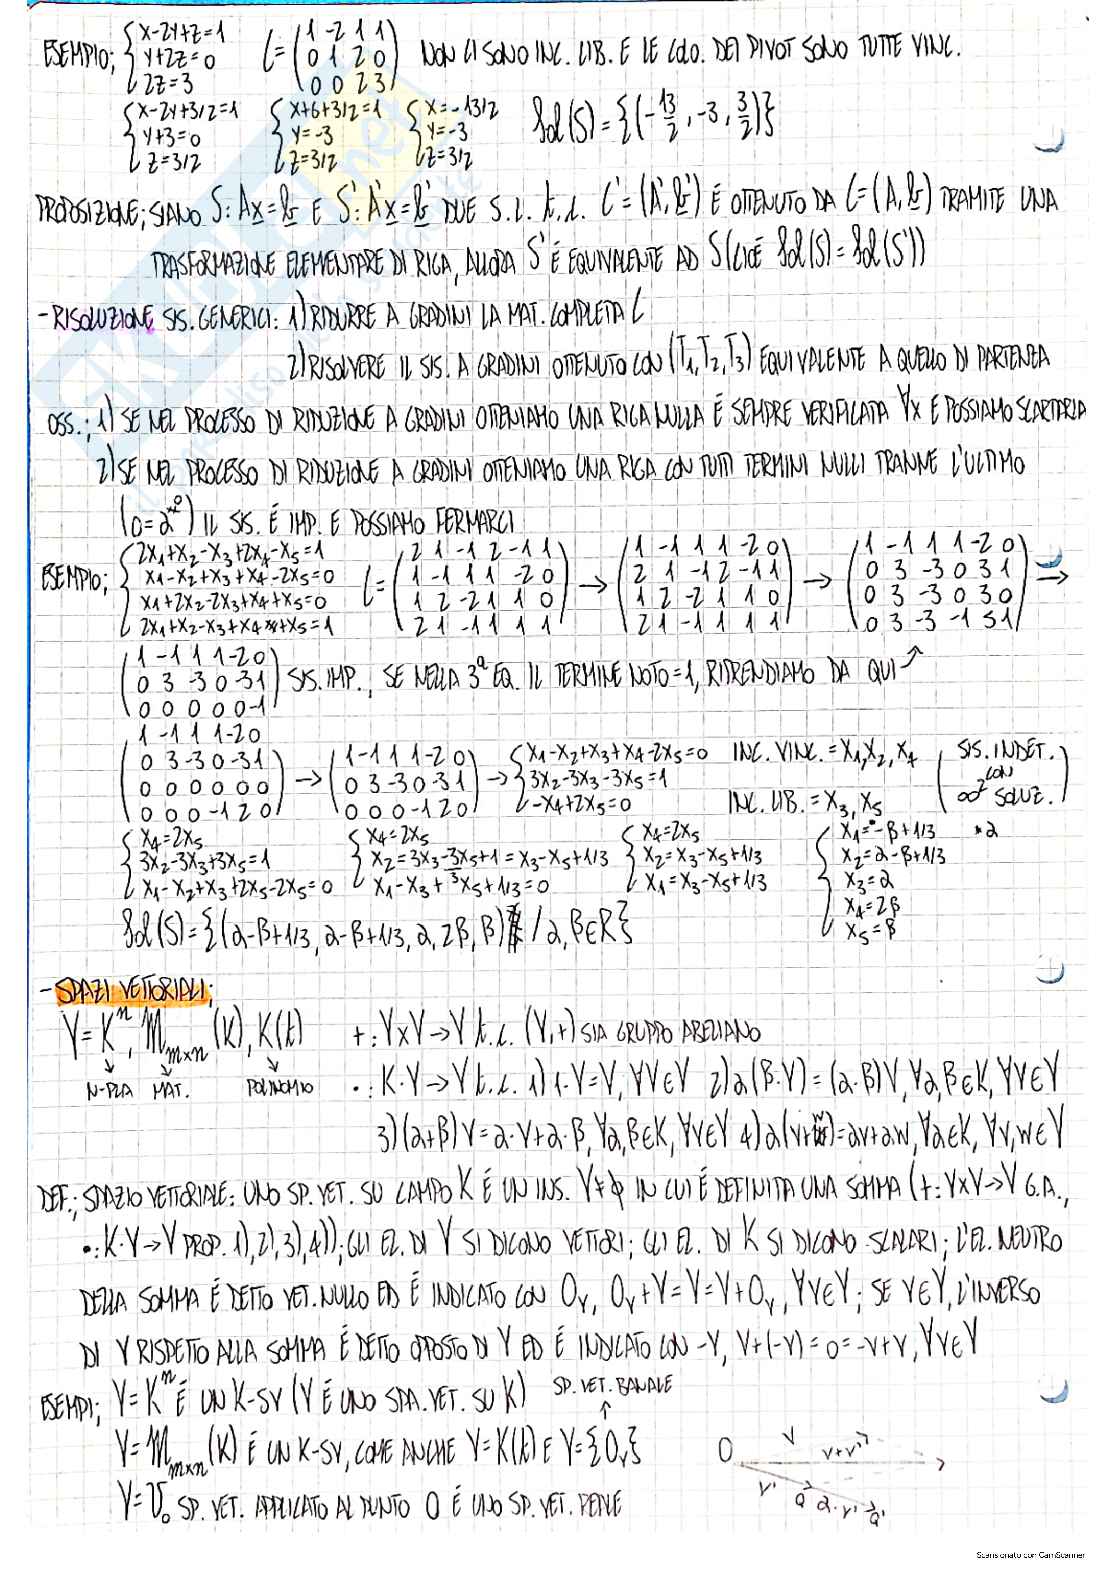 ESEMPIO; { x-2y+z=1 C= (1 -2 1 1) NON CI SONO INC. LIB. E LE COLO. DEI PIVOT SONO TUTTE VINC.
y+2z=0 (0 1 2 0)
2z=3 (0 0 2 3)
{ x-2y+3/2=1 { x+6+3/2=1 { x=-13/2 Sol(S)={(-13/2, -3, 3/2)}
y+3=0 y=-3 y=-3
z=3/2 z=3/2 z=3/2
PROPOSIZIONE; SIANO S: Ax=b E S': A'x=b' DUE S.L. t.c. C'=(A',b') É OTTENUTO DA C=(A,b) TRAMITE UNA
TRASFORMAZIONE ELEMENTARE DI RIGA, ALLORA S' É EQUIVALENTE AD S (CIOÉ Sol(S)=Sol(S'))
-RISOLUZIONE SIS. GENERICI: 1) RIDURRE A GRADINI LA MAT. COMPLETA C
2) RISOLVERE IL SIS. A GRADINI OTTENUTO CON (T1,T2,T3) EQUIVALENTE A QUELLO DI PARTENZA
OSS.; 1) SE NEL PROCESSO DI RIDUZIONE A GRADINI OTTENIAMO UNA RIGA NULLA É SEMPRE VERIFICATA ∀x E POSSIAMO SCARTARLA
2) SE NEL PROCESSO DI RIDUZIONE A GRADINI OTTENIAMO UNA RIGA CON TUTTI TERMINI NULLI TRANNE L'ULTIMO
(0=a≠0) IL SIS. É IMP. E POSSIAMO FERMARCI
ESEMPIO; { 2x1+x2-x3+2x4-x5=1 C= (2 1 -1 2 -1 1) → (1 -1 1 1 -2 0) → (1 -1 1 1 -2 0) →
x1-x2+x3+x4-2x5=0 (1 -1 1 1 -2 0) (2 1 -1 2 -1 1) (0 3 -3 0 3 1)
x1+2x2-2x3+x4+x5=0 (1 2 -2 1 1 0) (1 2 -2 1 1 0) (0 3 -3 0 3 0)
2x1+x2-x3+x4+x5=1 (2 1 -1 1 1 1) (2 1 -1 1 1 1) (0 3 -3 -1 5 1)
(1 -1 1 1 -2 0)
(0 3 -3 0 -3 1) SIS. IMP., SE NELLA 3ª EQ. IL TERMINE NOTO=1, RIPRENDIAMO DA QUI
(0 0 0 0 0 -1)
(1 -1 1 1 -2 0)
(0 3 -3 0 -3 1) → (1 -1 1 1 -2 0) → { x1-x2+x3+x4-2x5=0 INC. VINC.=x1,x2,x4 (SIS. INDET.
(0 0 0 0 0 0) (0 3 -3 0 -3 1) 3x2-3x3-3x5=1 CON
(0 0 0 -1 2 0) (0 0 0 -1 2 0) -x4+2x5=0 INC. LIB.=x3,x5 ∞² SOLUZ.)
{ x4=2x5 { x4=2x5 { x4=2x5 { x1=-β+1/3 +α
3x2-3x3+3x5=1 x2=3x3-3x5+1=x3-x5+1/3 x2=x3-x5+1/3 x2=α-β+1/3
x1-x2+x3+2x5-2x5=0 x1-x3+x5+1/3=0 x1=x3-x5+1/3 x3=α
x4=2β
x5=β
Sol(S)={(α-β+1/3, α-β+1/3, α, 2β, β) / α,β∈R}
-SPAZI VETTORIALI;
V=Kⁿ, Mm×n(K), K(t) +: V×V→V t.c. (V,+) SIA GRUPPO ABELIANO
N-PLA MAT. POLINOMIO ·: K·V→V t.c. 1) 1·V=V, ∀V∈V 2) α(β·V)=(α·β)V, ∀α,β∈K, ∀V∈V
3) (α+β)V=α·V+α·β, ∀α,β∈K, ∀V∈V 4) α(V+W)=αV+αW, ∀α∈K, ∀V,W∈V
DEF.; SPAZIO VETTORIALE: UNO SP. VET. SU CAMPO K É UN INS. V≠∅ IN CUI É DEFINITA UNA SOMMA (+: V×V→V G.A.,
·: K·V→V PROP. 1),2),3),4)); GLI EL. DI V SI DICONO VETTORI; GLI EL. DI K SI DICONO SCALARI; L'EL. NEUTRO
DELLA SOMMA É DETTO VET. NULLO ED É INDICATO CON 0v, 0v+V=V=V+0v, ∀V∈V; SE V∈V, L'INVERSO
DI V RISPETTO ALLA SOMMA É DETTO OPPOSTO DI V ED É INDICATO CON -V, V+(-V)=0=-V+V, ∀V∈V
ESEMPI; V=Kⁿ É UN K-SV (V É UNO SPA. VET. SU K) SP. VET. BANALE
V=Mm×n(K) É UN K-SV, COME ANCHE V=K(t) E V={0v}
V=V0 SP. VET. APPLICATO AL PUNTO O É UNO SP. VET. REALE
O V V+V'
V' Q α·V' Q'
Scansionato con CamScanner